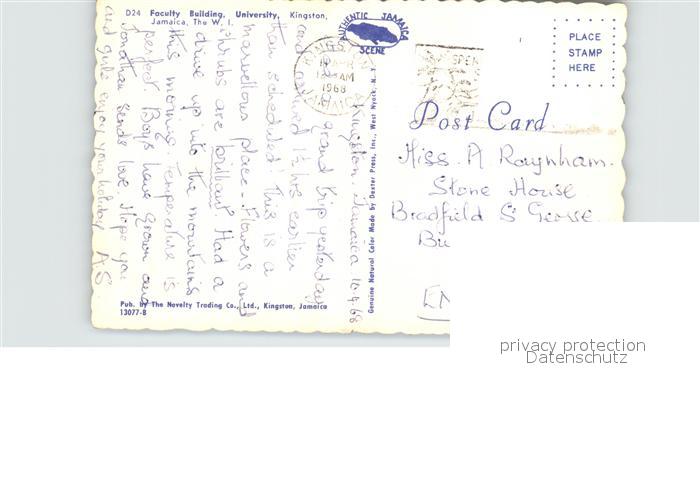 D24 Faculty Building, University, Kingston,
Jamaica, The W. I.
AUTHENTIC JAMAICA
SCENE
AM
1968
PLACE
STAMP
HERE
Post Card
Miss. A Raynham.
Stone House
Bradfield S George
Bu
EN
Kingston. Jamaica 10.4.68
Had a grand trip yesterday
and arrived 1½ hrs earlier
than scheduled! This is a
marvellous place - Flowers and
shrubs are brilliant. Had a
drive up into the mountains
this morning. Temperature is
perfect. Boys have grown and
Jonathan sends love. Hope you
and girls enjoy your holiday A.S.
Genuine Natural Color Made by Dexter Press, Inc., West Nyack, N. Y.
Pub. by The Novelty Trading Co., Ltd., Kingston, Jamaica
13077-B
privacy protection
Datenschutz